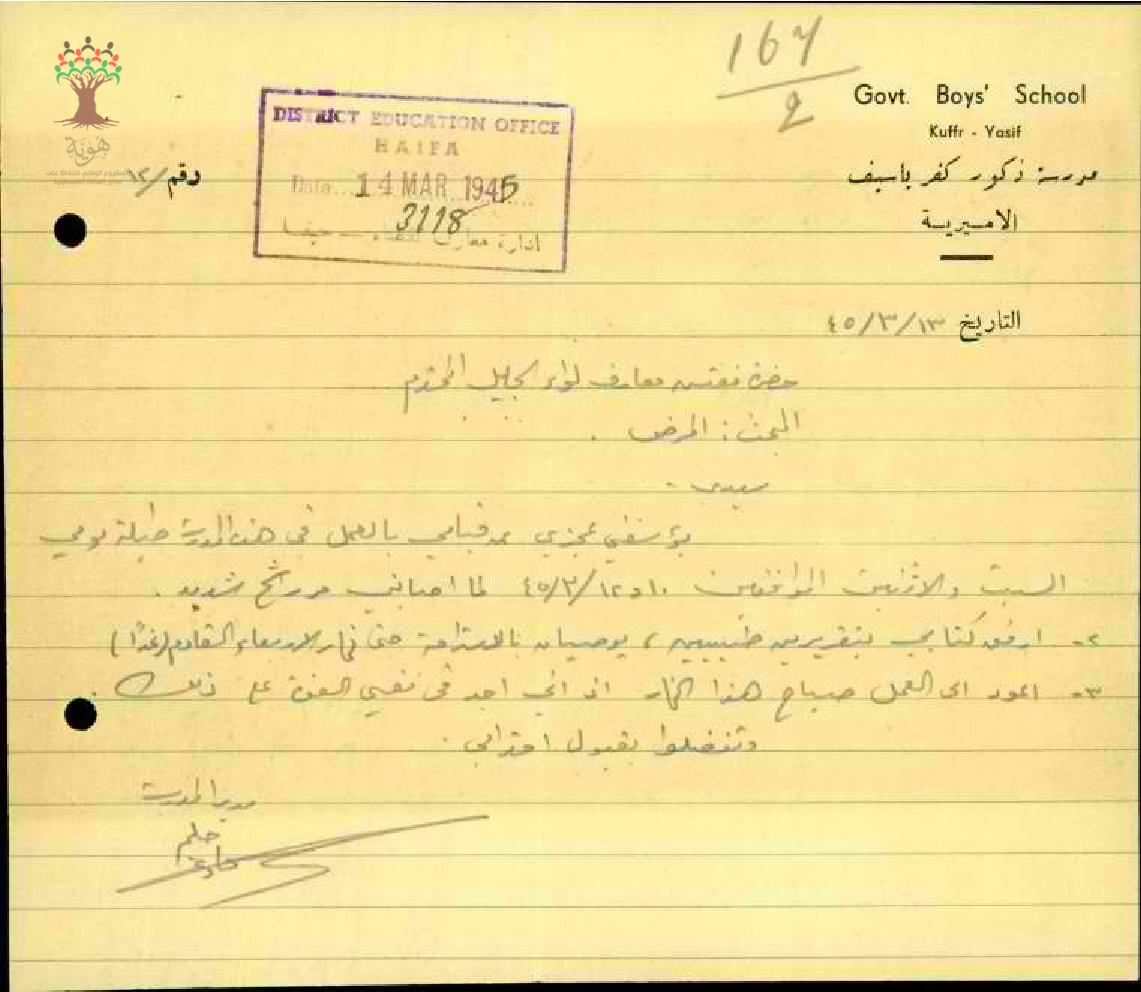 167
2
Govt. Boys' School
Kuffr - Yasif
مدرسة ذكور كفر ياسيف
الاميرية
DISTRICT EDUCATION OFFICE
HAIFA
Date... 14 MAR 1945
3118
ادارة معارف حيفا
رقم /١٢
هوية
التاريخ ٤٥/٣/١٣
حضرة مفتش معارف لواء الجليل المحترم
البحث : المرض .
سيدي -
يؤسفني عجزي عن قيامي بالعمل في هذه المدرسة طيلة يومي
السبت والاثنين الموافقين ١٠ و ٤٥/٣/١٢ لما اصابني من رشح شديد .
٢- ارفق كتابي بتقريرين طبيين ، يوصيان بالاستراحة حتى نهار الاربعاء القادم (غدًا)
٣- اعود الى العمل صباح هذا النهار اذ اني اجد في نفسي القوة على ذلك .
وتفضلوا بقبول احترامي .
مدير المدرسة